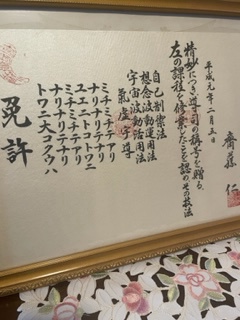 免許
トワニ大コクウハ
ナリナリテアリ
ミチミチテアリ
ユエニトコトワニ
ナリナリテナリ
ミチミチテアリ
氣虚宇導
宇宙波動活用法
想念波動運用法
自己制禦法
左の課程を修業したことを認めその技法
精妙につき導司の稱号を贈る
平成元年二月五日
齋藤 仁